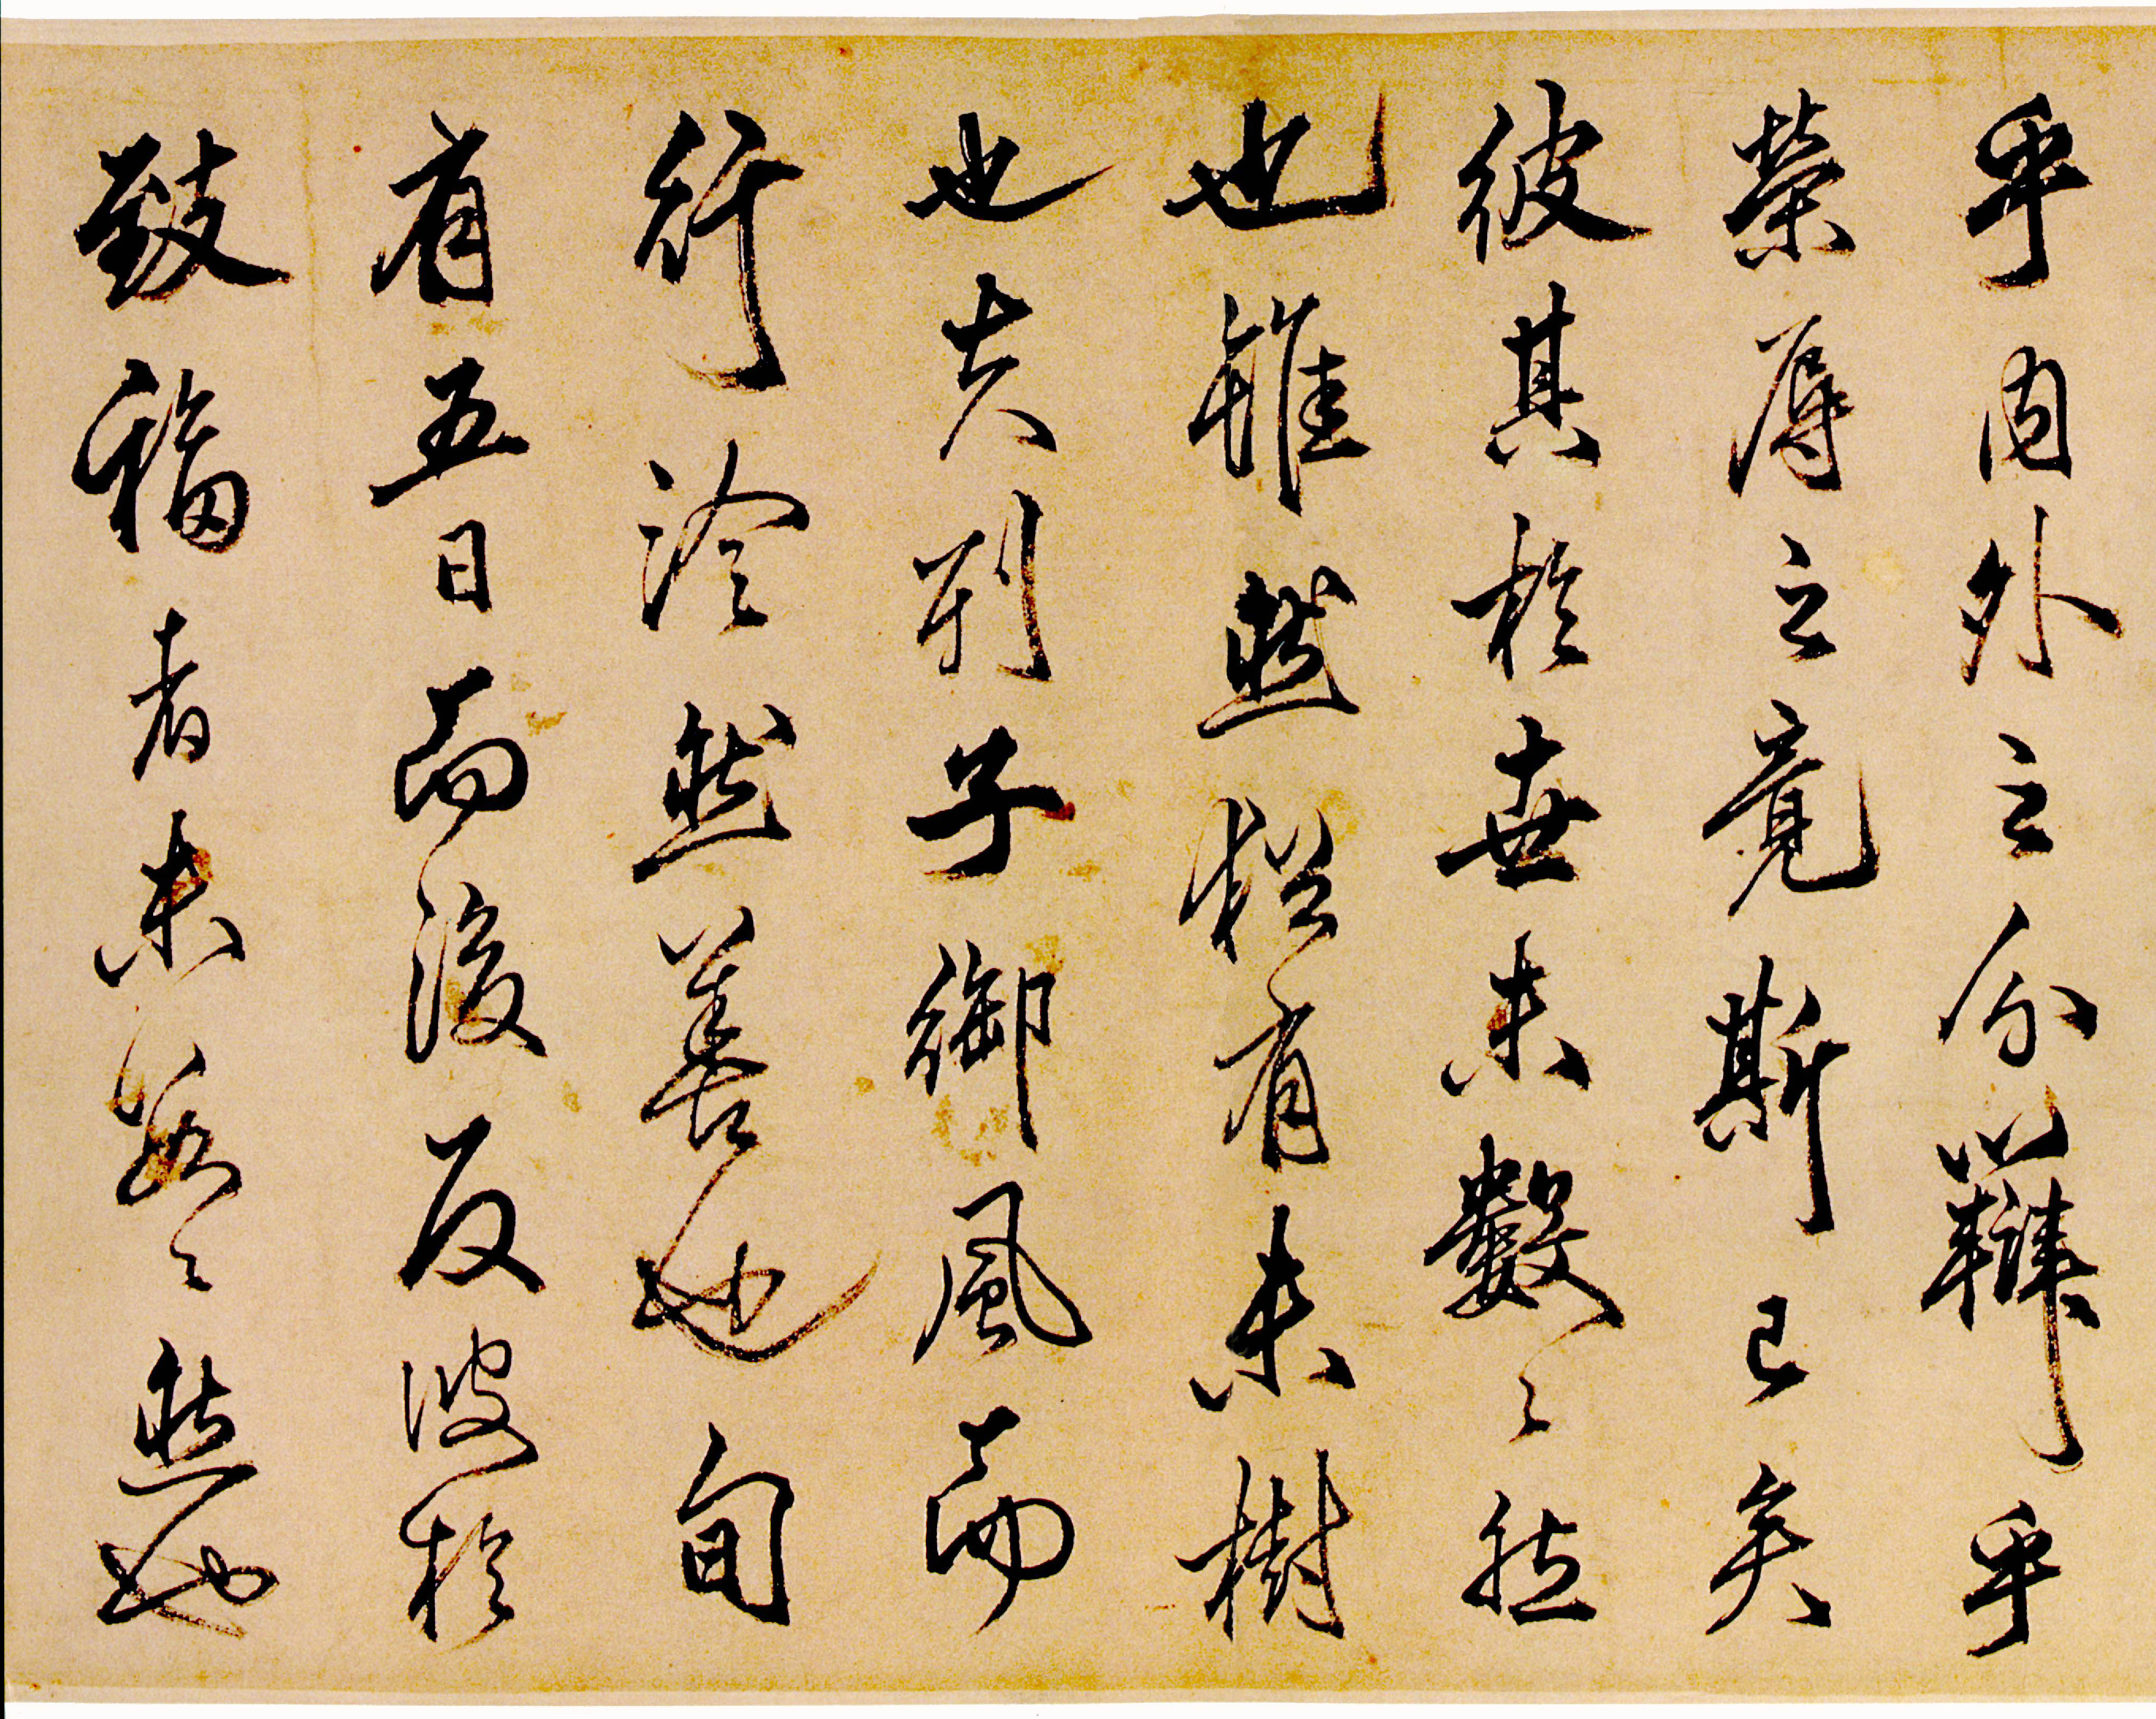 乎内外之分辨乎
榮辱之竟斯已矣
彼其於世未數〻然
也雖然猶有未樹
也夫列子御風而
行泠然善也旬
有五日而後反彼於
致福者未數〻然也